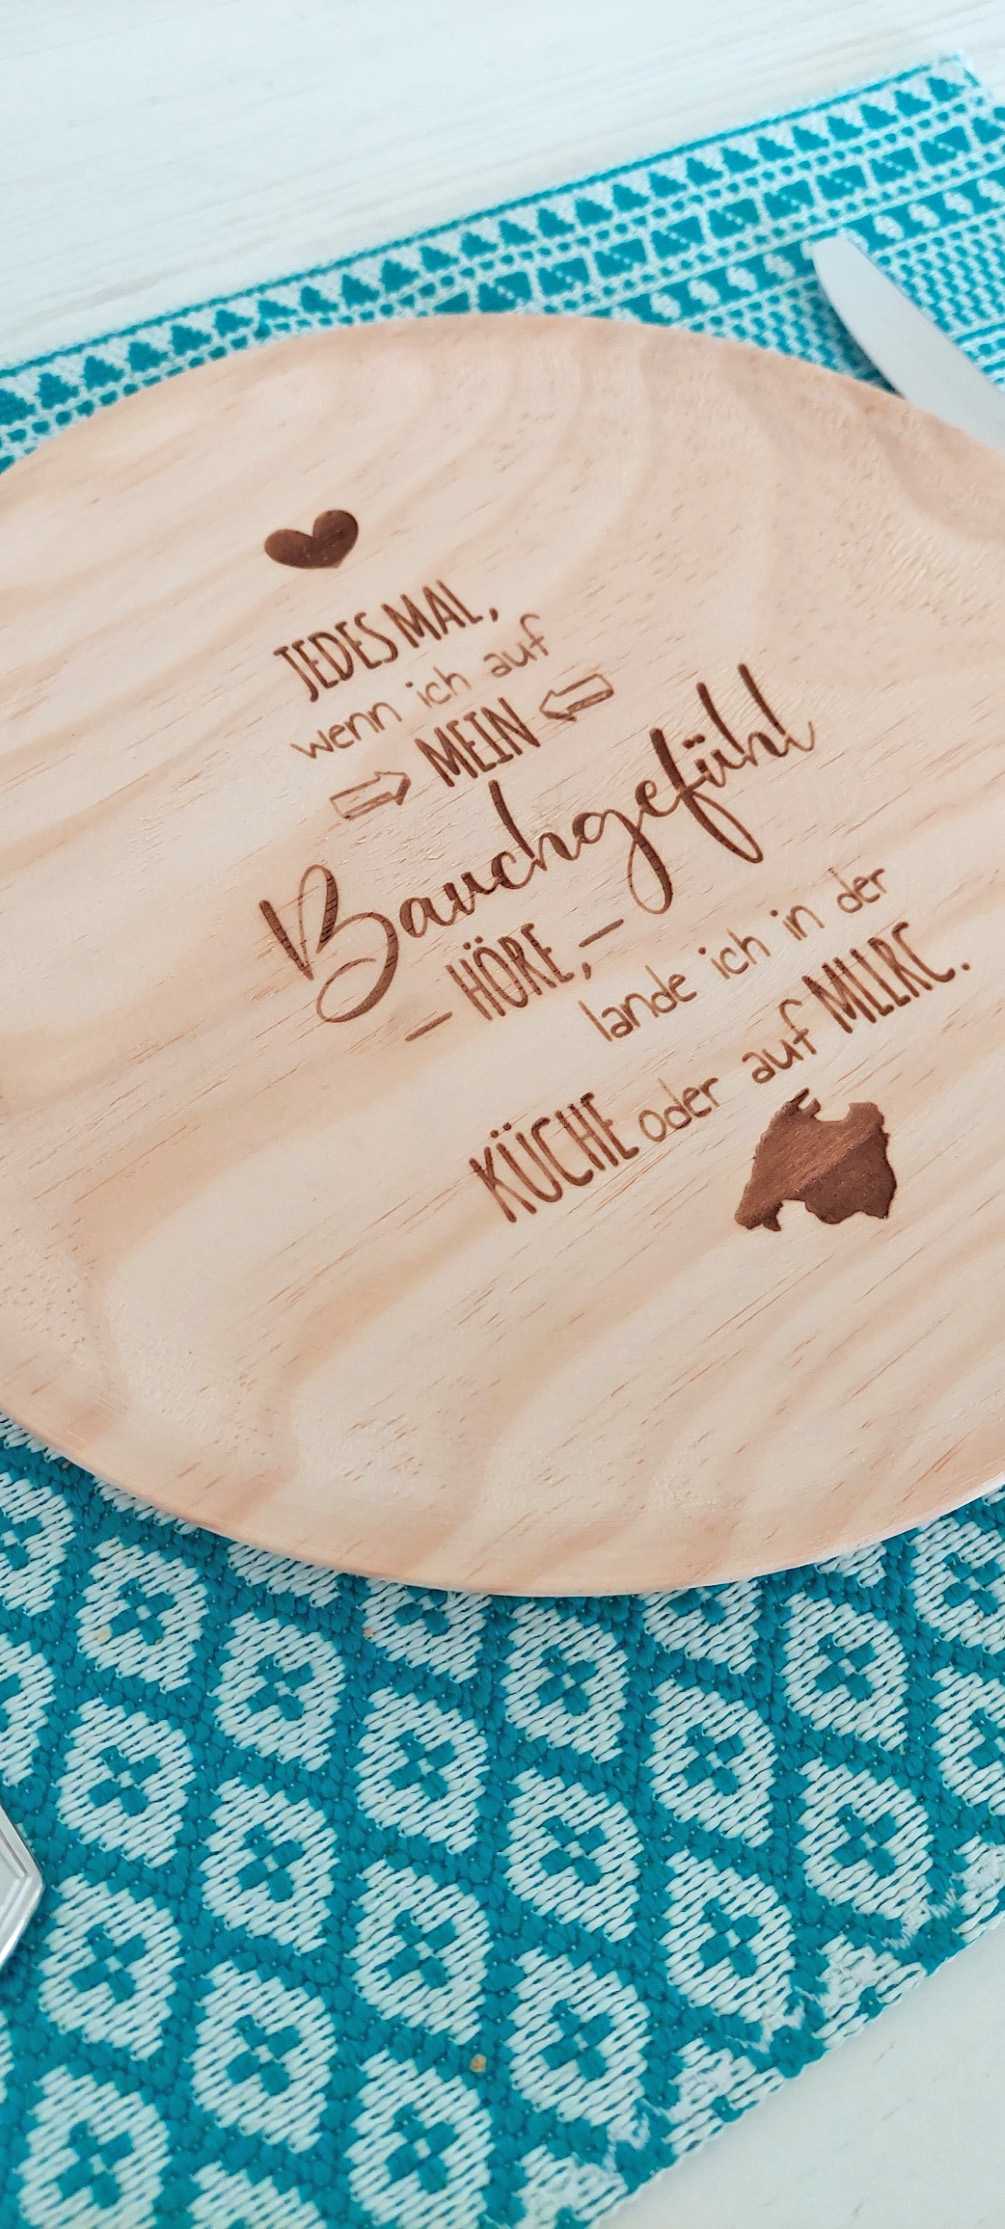 JEDES MAL,
wenn ich auf
MEIN
Bauchgefühl
– HÖRE, –
lande ich in der
KÜCHE oder auf MLLRC.